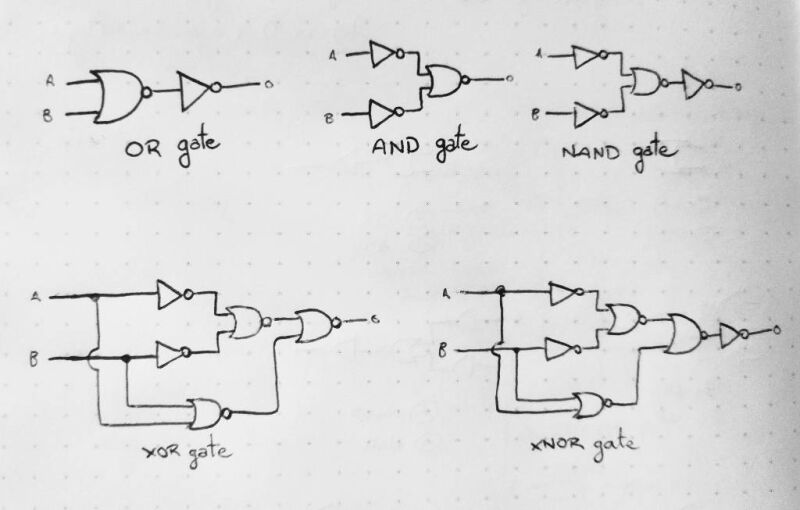 A
B
O
OR gate
A
B
O
AND gate
A
B
O
NAND gate
A
B
O
XOR gate
A
B
O
XNOR gate